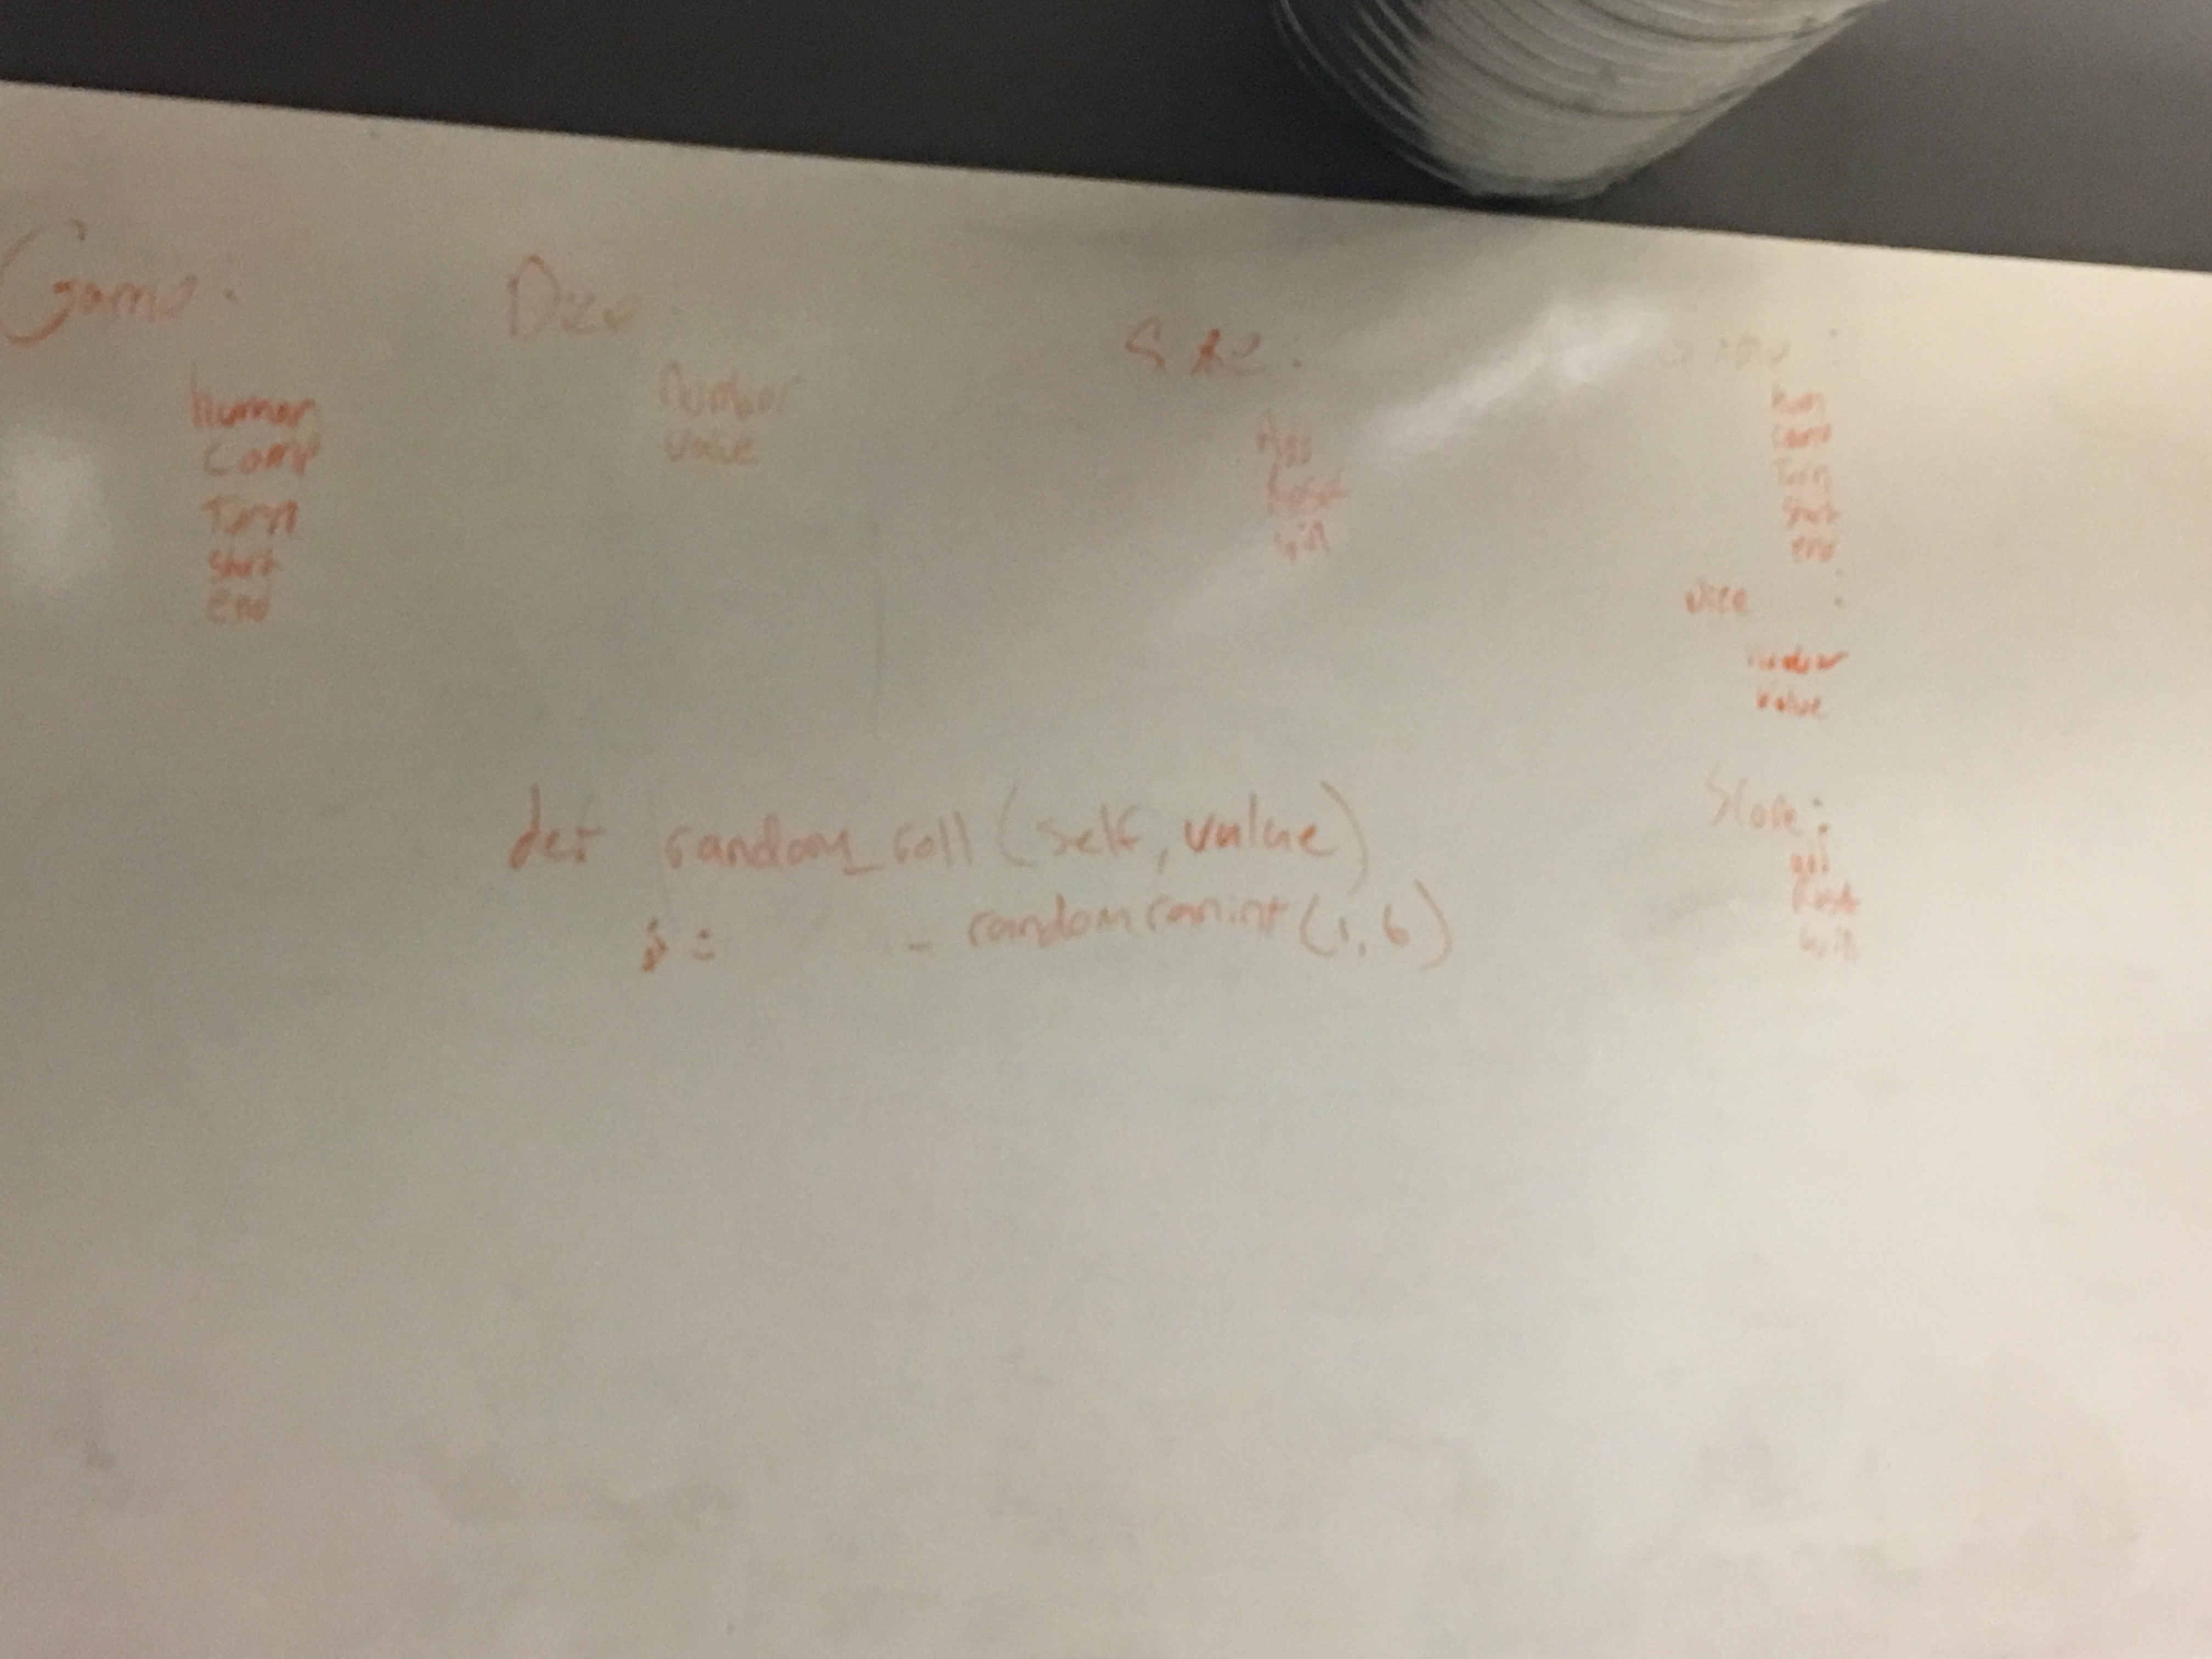 Game:
human
Comp
Turn
start
end
Dice:
number
value
Add
Reset
win
hum
Comp
Turn
Start
end
Dice :
number
value
Score:
add
Reset
win
def random_roll (self, value)
= random ranint (1, 6)